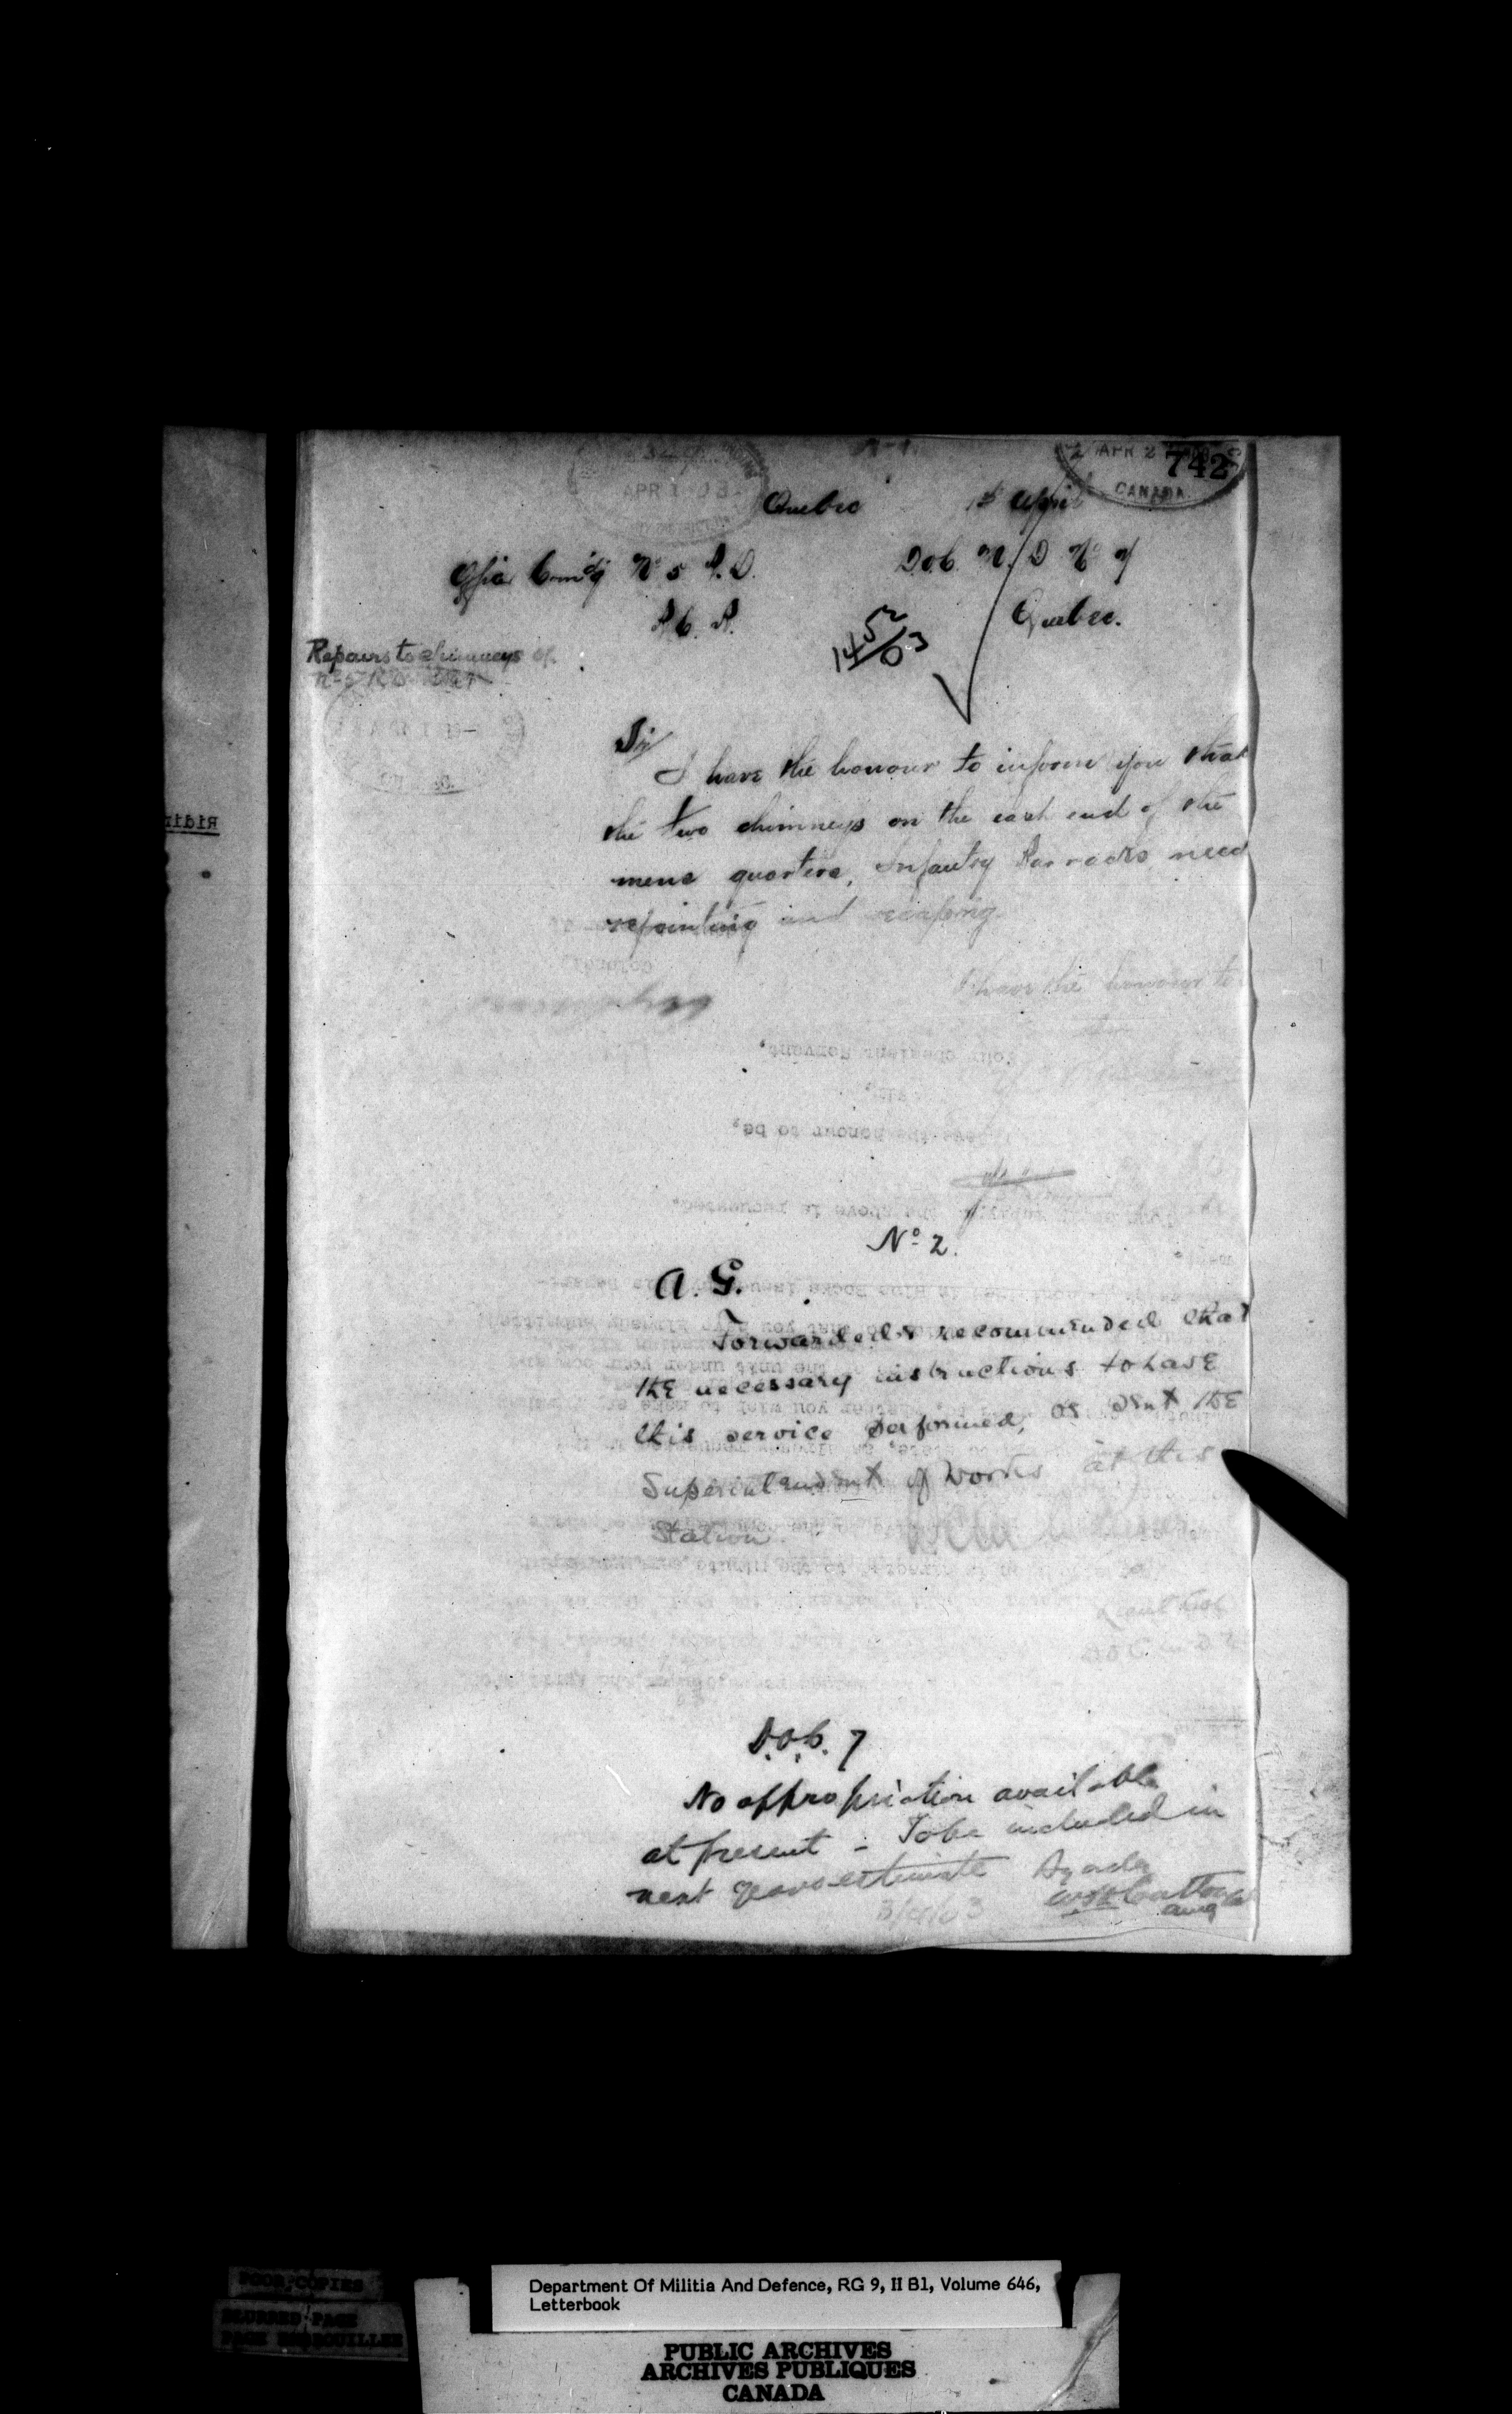 742
APR 2
CANADA
APR 1 03
Quebec 1st April
Offic Comd'g No 5 R.D. D.O.C. M.D No 7
R.C.R. Quebec.
1452/03
Repairs to chimneys of
No 5 R.D.
Sir
I have the honour to inform you that
the two chimneys on the east end of the
mens quarters, Infantry Barracks, need
repointing and
I have the honour to
No 2.
A.G.
Forwarded & recommended that
the necessary instructions to have
this service performed, as sent the
Superintendent of Works at this
Station.
Lieut Col
D.O.C.
D.O.C. 7
No appropriation available
at present - To be included in
next years estimate By order
3/4/03
Department Of Militia And Defence, RG 9, II B1, Volume 646,
Letterbook
POOR COPIES
BLURRED PAGE
PAGE BROUILLEE
PUBLIC ARCHIVES
ARCHIVES PUBLIQUES
CANADA